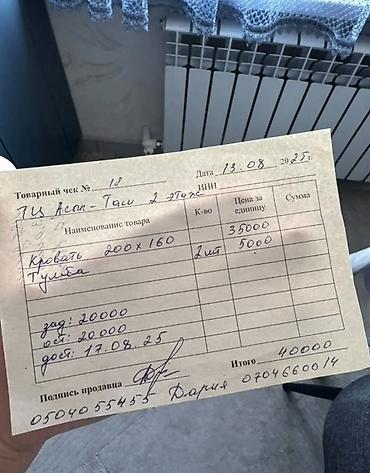 Товарный чек № 18 Дата 13.08 2025г.
ТЦ Асыл-Таш 2 этаж ИНН
Наименование товара К-во Цена за единицу Сумма
Кровать 200х160 35000
Тумба 2шт 5000
зад: 20000
ост: 20000
дост: 17.08.25
Итого 40000
Подпись продавца
0504055455 Дария 0704660014